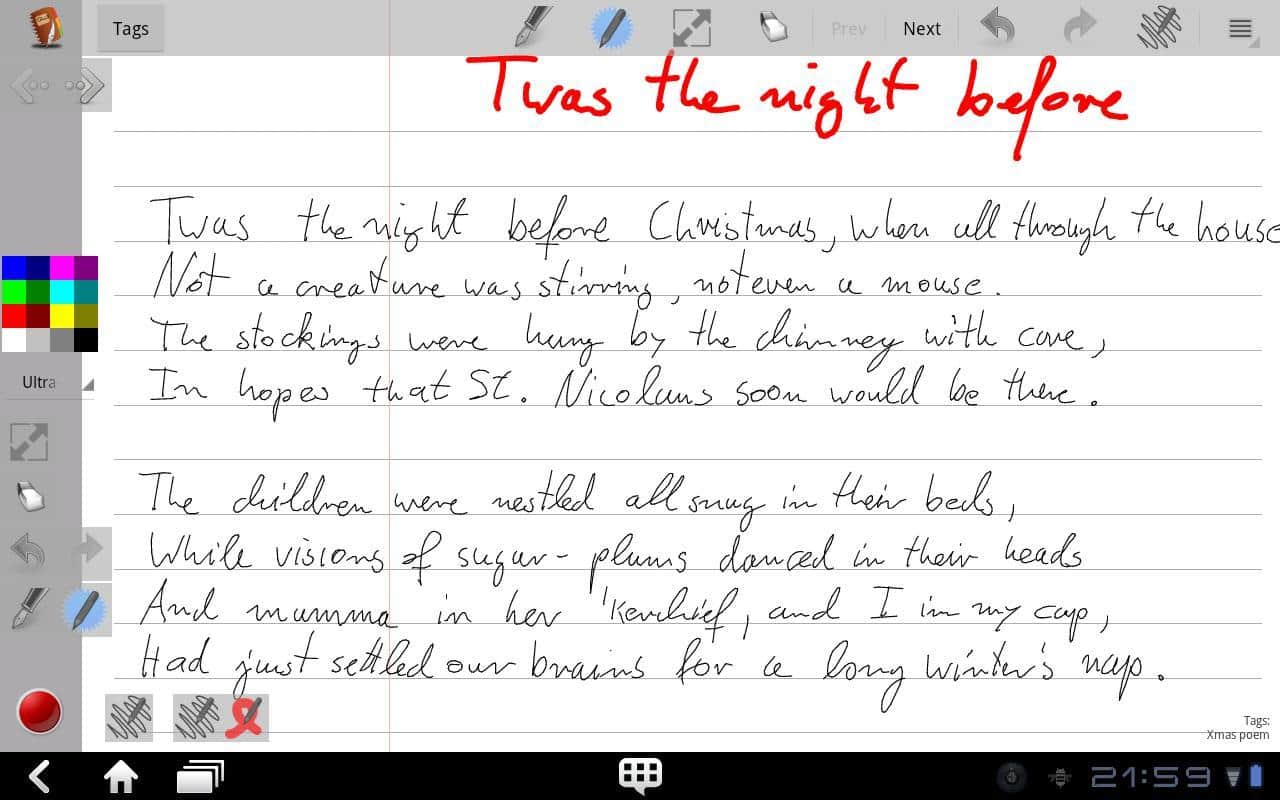 Tags
Prev
Next
Twas the night before
Twas the night before Christmas, when all through the house
Not a creature was stirring, not even a mouse.
The stockings were hung by the chimney with care,
In hopes that St. Nicolaus soon would be there.
Ultra
The children were nestled all snug in their beds,
While visions of sugar-plums danced in their heads
And mumma in her 'Kerchief, and I in my cap,
Had just settled our brains for a long winter's nap.
Tags:
Xmas poem
21:59